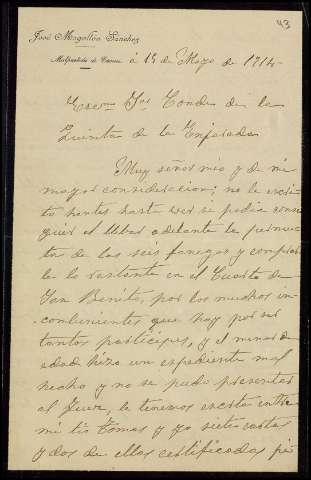 43
José Mogollon Sanchez
Malpartida de Caceres á 15 de Mayo de 1914
Excmo Sor Conde de la
Quinta de la Enjarada
Muy señor mio y de mi
mayor consideracion; no le escri-
to hantes hasta ver si podia conse
guir el llebar adelante la permu-
ta de las seis fanegas y comprar
le lo restante en el Cuarto de
San Benito, por los muchos in-
conbenientes que hay por ser
tantos participes, y el menor de
edad hizo un espediente mal
hecho y no se pudo presentar
al Juez, le tenemos escrito entre
mi tio Tomas y yo siete cartas
y dos de ellas certificadas pi